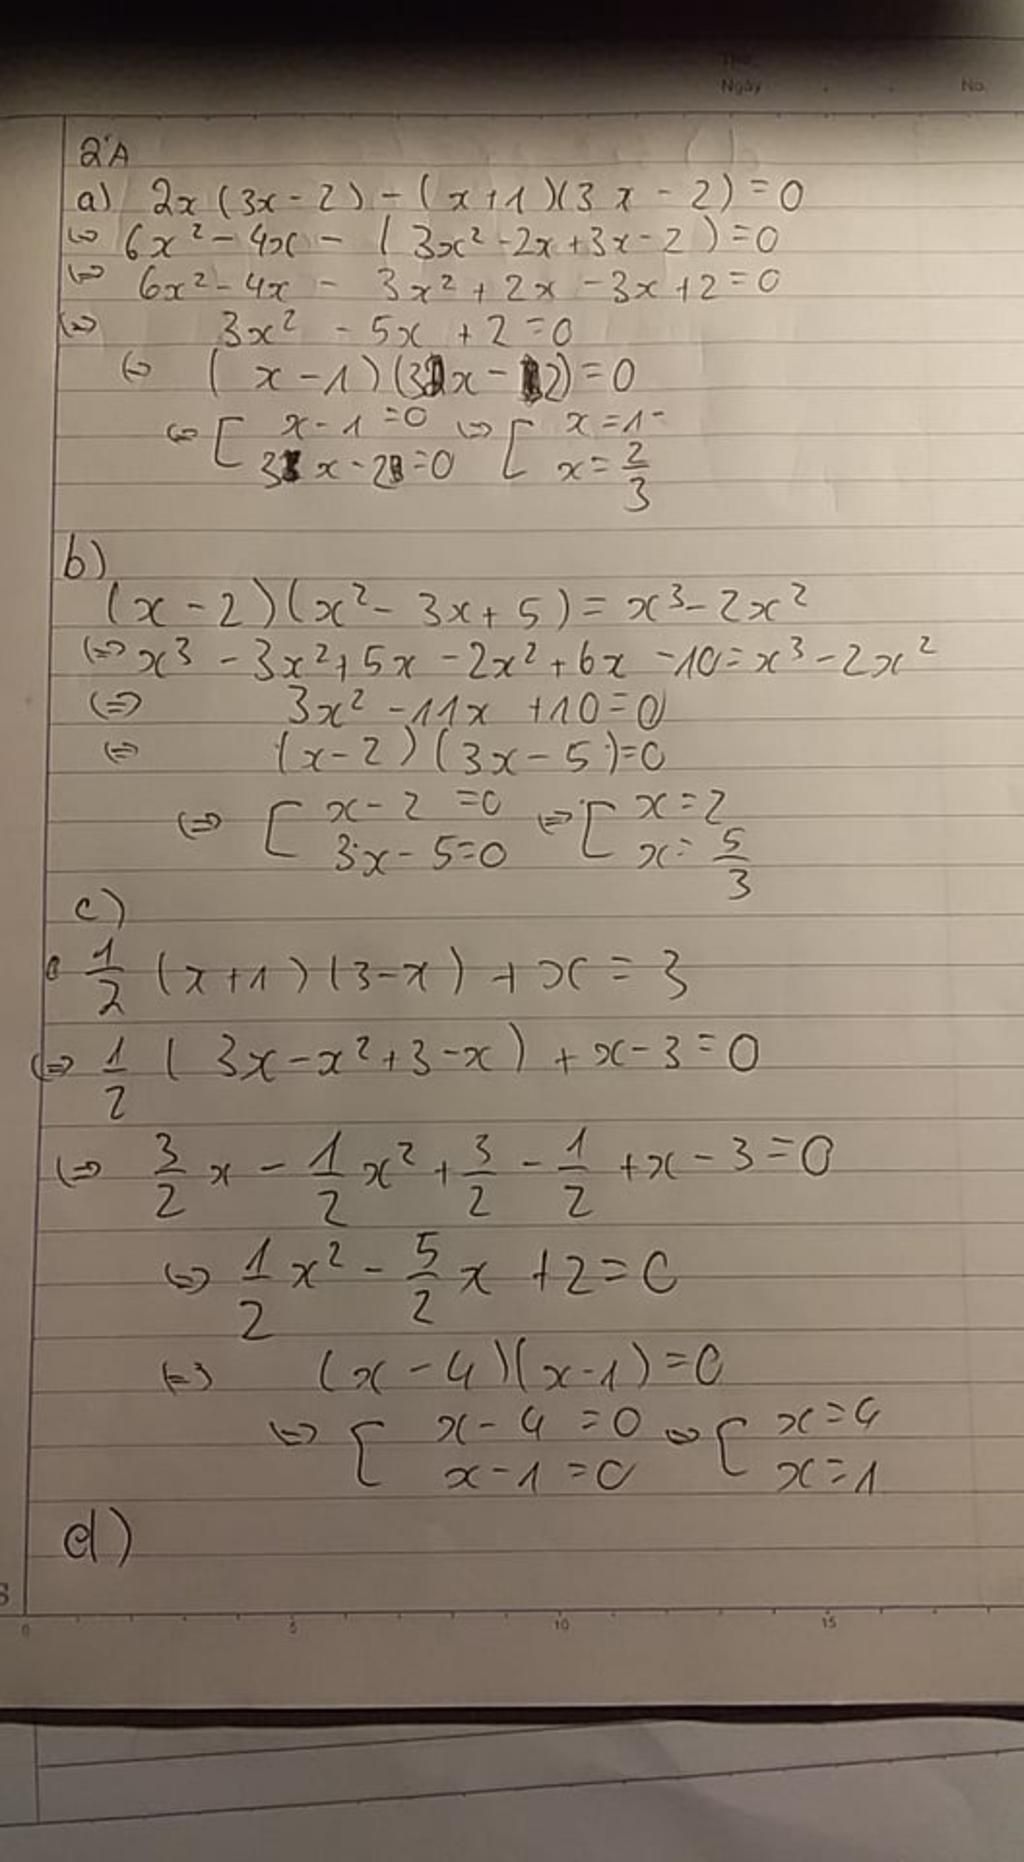 Thứ
Ngày . . No.
2'A
a) 2x(3x-2)-(x+1)(3x-2)=0
⇔ 6x²-4x-(3x²-2x+3x-2)=0
⇔ 6x²-4x-3x²+2x-3x+2=0
⇔ 3x²-5x+2=0
⇔ (x-1)(3x-2)=0
⇔ [ x-1=0 ⇔ [ x=1
3x-2=0 x=2/3
b)
(x-2)(x²-3x+5)=x³-2x²
⇔ x³-3x²+5x-2x²+6x-10=x³-2x²
⇔ 3x²-11x+10=0
⇔ (x-2)(3x-5)=0
⇔ [ x-2=0 ⇔ [ x=2
3x-5=0 x=5/3
c)
1/2 (x+1)(3-x)+x=3
⇔ 1/2 (3x-x²+3-x)+x-3=0
⇔ 3/2 x - 1/2 x² + 3/2 - 1/2 + x - 3 = 0
⇔ 1/2 x² - 5/2 x + 2 = 0
⇔ (x-4)(x-1)=0
⇔ [ x-4=0 ⇔ [ x=4
x-1=0 x=1
d)
0 5 10 15